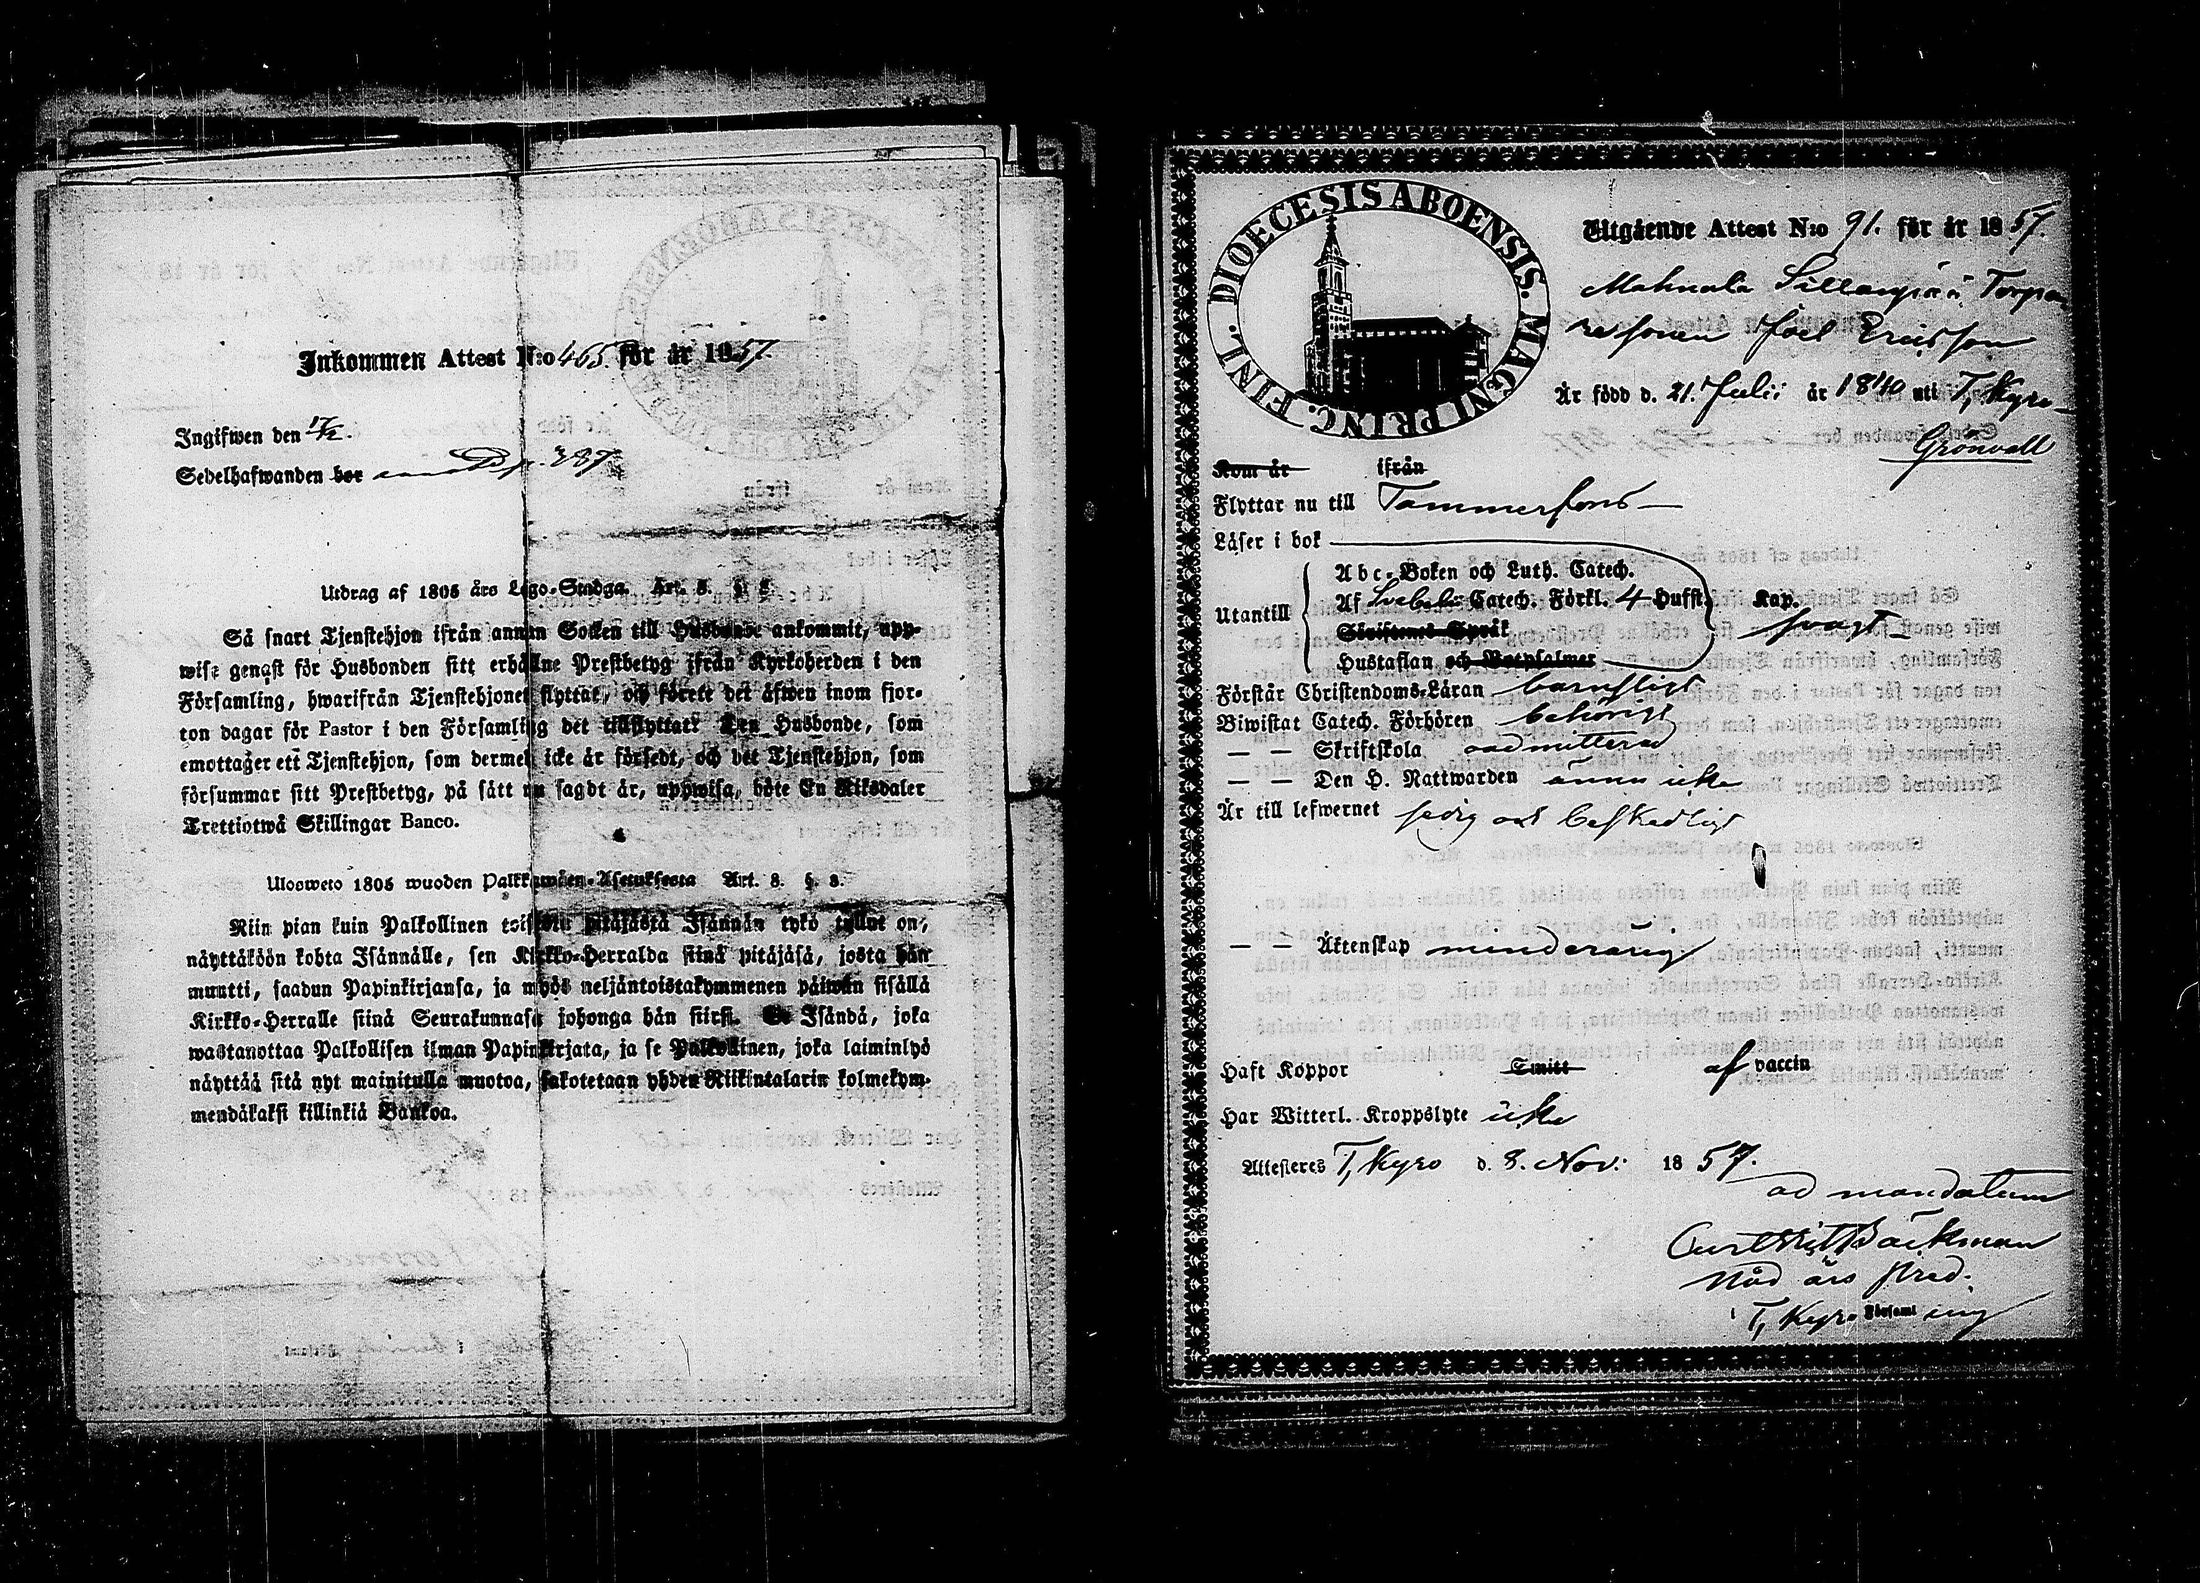 Inkommen Attest N:o 465. för år 1857.
Ingifwen den 17/12.
Sedelhafwanden bor p. 387
Utdrag af 1805 års Lego-Stadga. Art. 3. § 8.
Så snart Tjenstehjon ifrån annan Socken till Husbonde ankommit, upp-
wise genast för Husbonden sitt erhållne Prestbetyg ifrån Kyrkoherden i den
Församling, hwarifrån Tjenstehjonet flyttat, och förete det äfwen inom fjor-
ton dagar för Pastor i den Församling det tillflyttat. Den Husbonde, som
emottager ett Tjenstehjon, som dermed icke är försedt, och det Tjenstehjon, som
försummar sitt Prestbetyg, på sätt nu sagdt är, uppwisa, böte En Riksdaler
Trettiotwå Skillingar Banco.
Ulosweto 1805 wuoden Palkkawäen-Asetuksesta Art. 3. §. 8.
Niin pian kuin Palkollinen toisesta pitäjästä Isännän tykö tullut on,
näyttäköön kohta Isännälle, sen Kirkko-Herralda siinä pitäjäsä, josta hän
muutti, saadun Papinkirjansa, ja myös neljäntoistakymmenen päiwän sisällä
Kirkko-Herralle siinä Seurakunnasa johonga hän siirsi. Se Isändä, joka
wastanottaa Palkollisen ilman Papinkirjata, ja se Palkollinen, joka laiminlyö
näyttää sitä nyt mainitulla muotoa, sakotetaan yhden Riikintalarin kolmekym-
mendäkaksi killinkiä Bankoa.
DIOECESIS ABOENSIS. MAGNI PRINC. FINL.
Utgående Attest N:o 91. för år 1857.
Mahnala Sillanpää Torpa
resonen Joel Ericsson
Är född d. 21. Julii år 1840 uti T, Kyro
Grönvall
Kom år ifrån
Flyttar nu till Tammerfors
Läser i bok
Abc-Boken och Luth. Catech.
Utantill Af Svebelii Catech. Förkl. 4 Hufst. Kap.
Skriftenes Språk svagt
Hustaflan och Botpsalmer
Förstår Christendoms-Läran barnsligt
Biwistat Catech. Förhören behörigt
— — Skriftskola oadmitterad
— — Den H. Nattwarden ännu icke
Är till lefwernet sedig och beskedligt
— — Äktenskap minderårig
Haft Koppor Smitt af vaccin
Har Witterl. Kroppslyte icke
Attesteres T, Kyro d. 8. Nov: 1857.
ad mandatum
Curt Wilh Bäckman
Nåd års Pred.
T, Kyro Församl ing